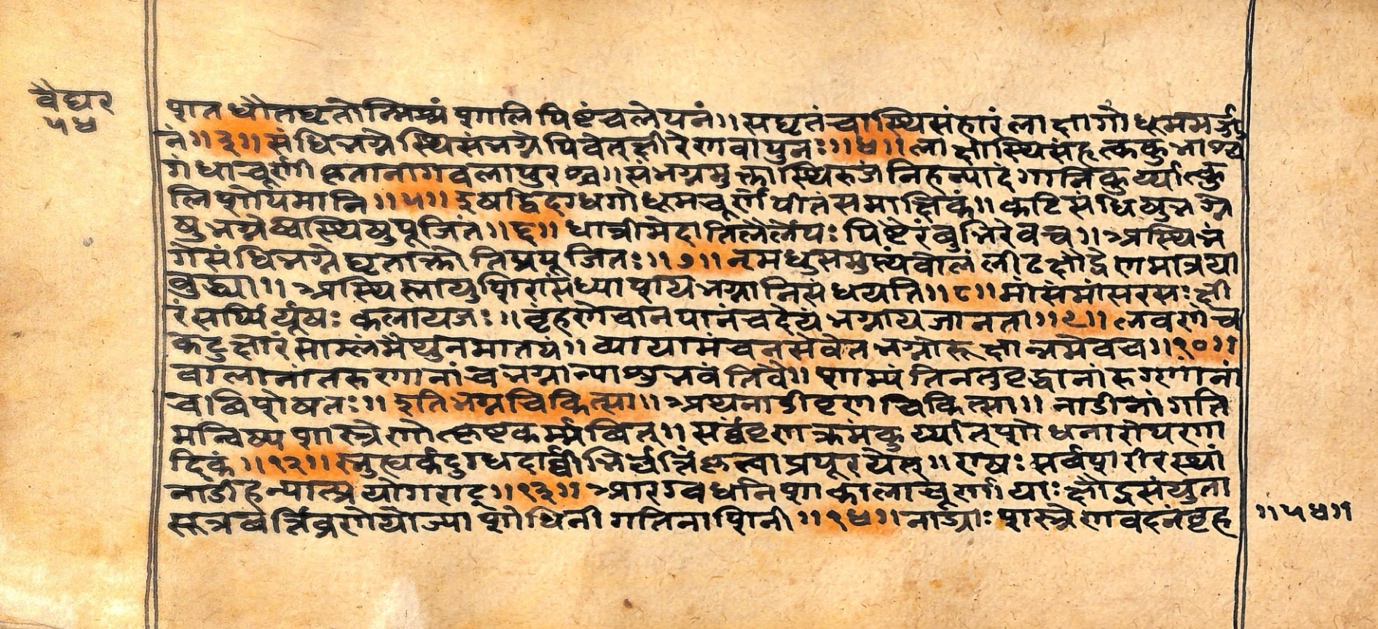 वैद्यर
५४
शतधौतघृतोन्मिश्रं शालिपिष्टंचलेपनं॥सघृतंचास्थिसंहारंलाक्षागोधूममर्जु
नं॥३॥संधिभग्नेस्थिसंभग्नेपिवेत्क्षीरेणवापुनः॥४॥लाक्षास्थिसंहृत्ककुभाश्व
गंधाचूर्णीकृतानागवलापुरश्च॥संभग्नमुक्तास्थिरुजंनिहन्यादंगानिकुर्य्यात्कु
लिशोपमानि॥५॥इषद्विदग्धगोधूमचूर्णं पीतंसमाक्षिकं॥कटिसंधिषुभग्ने
षुभग्नेष्वास्थिषुपूजितं॥६॥धात्रीमेदातिलैर्लेपःपिष्टैरंबुभिरेवच॥अस्थिभं
गेसंधिभग्नेघृताक्तोतिप्रपूजितः॥७॥
वुद्ध्या॥अस्थिस्नायुशिरासंध्याशयभग्नानिसंधयति॥८॥मांसंमांसरसःक्षी
रंसर्पिर्यूषःकलायजः॥वृंहणंचानपानंचदेयं भग्नायजानता॥९॥लवणंच
कटुक्षारंसाम्लंमैथुनमातपं॥व्यायामंचनसेवेतभग्नोरूक्षान्नमेवच॥१०॥
वालानांतरुणानांचभग्नान्याशुभवंतिवै॥शाम्यंतिनतुवृद्धानांरुग्णानां
चविशेषतः॥इतिभग्नचिकित्सा॥अथनाडीव्रणचिकित्सा॥नाडीनांगति
मन्विष्यशास्त्रेणोत्कृष्टकर्म्मवित्॥सर्वव्रणक्रमंकुर्य्यात्शोधनारोपणा
दिकं॥१२॥स्नुह्यर्कदुग्धदार्वीभिर्वर्त्तिंकृत्वाप्रपूरयेत्॥एषःसर्वशरीरस्थां
नाडींहन्यात्प्रयोगराट्॥१३॥आरग्वधनिशाकालाचूर्णायाःक्षौद्रसंयुता
सूत्रवर्त्तिर्व्रणेयोज्या शोधिनीगतिनाशिनी॥१४॥नाड्याःशस्त्रेण
॥५४॥